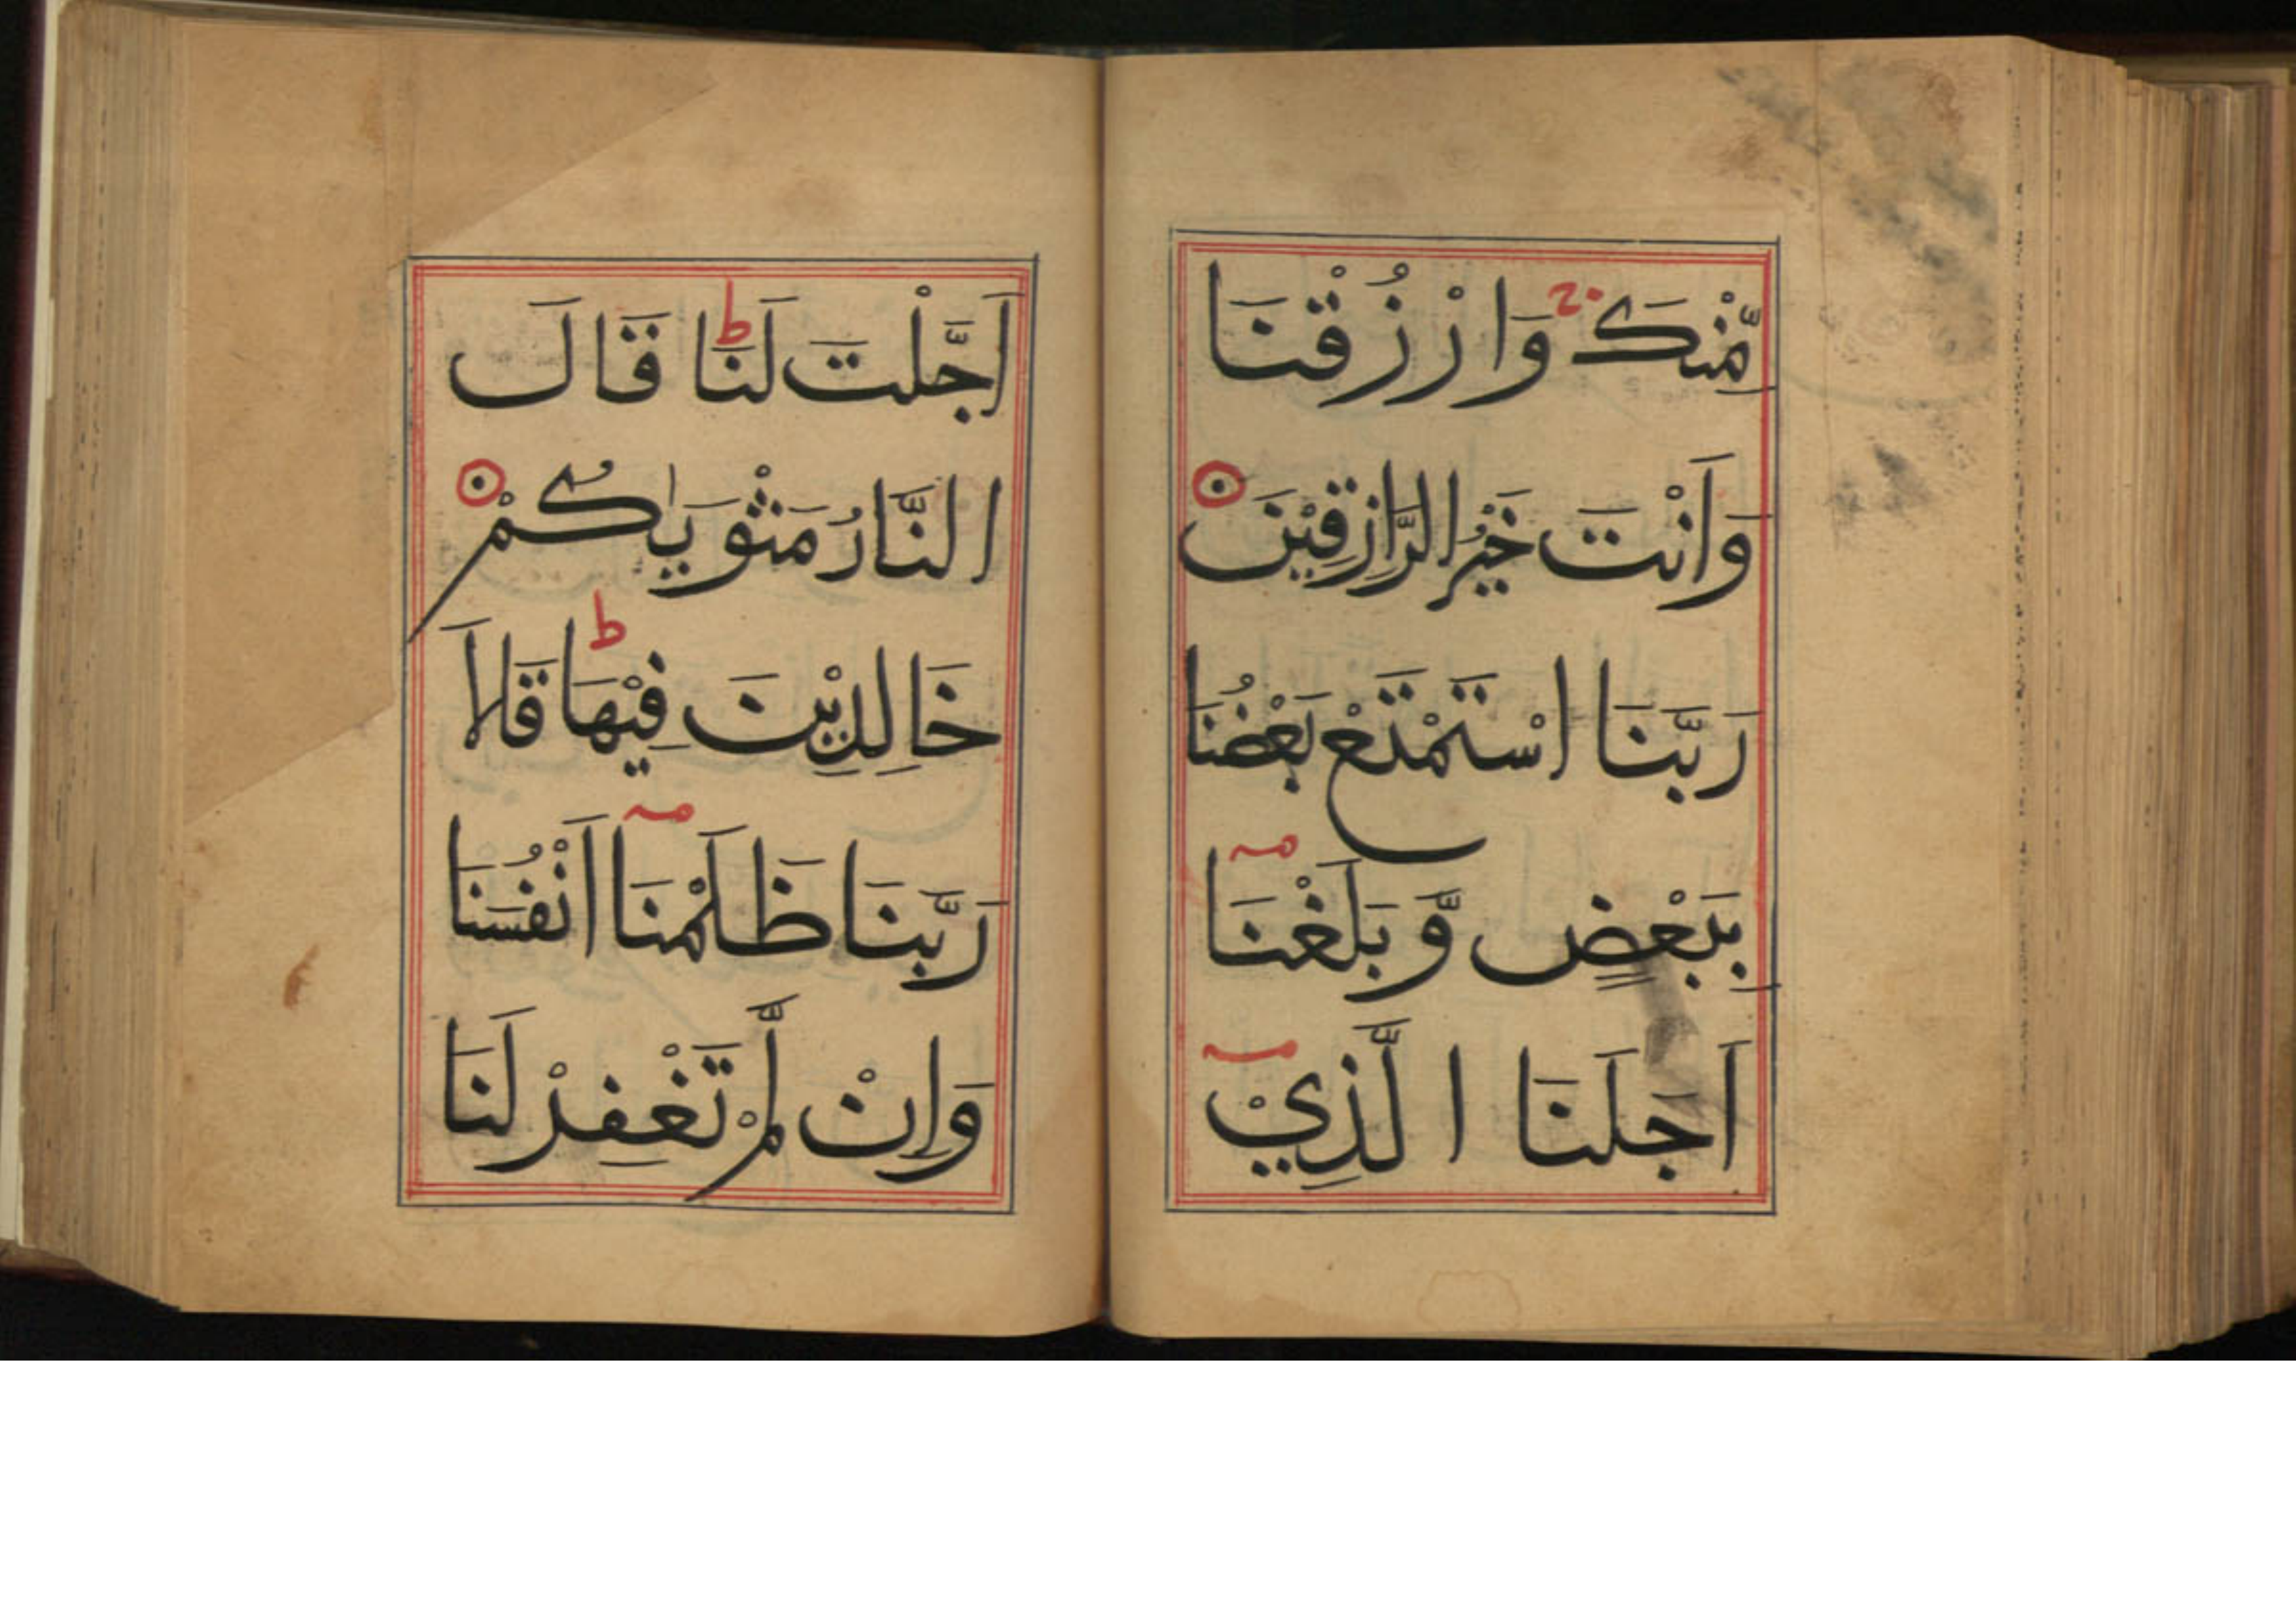 مِّنْكَ ج وَارْزُقْنَا
وَاَنْتَ خَيْرُ الرَّازِقِيْنَ
رَبَّنَا اسْتَمْتَعْ بَعْضُنَا
بِبَعْضٍ وَّبَلَغْنَا
اَجَلَنَا الَّذِيْ
اَجَّلْتَ لَنَا ط قَالَ
النَّارُ مَثْوٰيكُمْ
خَالِدِيْنَ فِيْهَا ط قَالَا
رَبَّنَا ظَلَمْنَا اَنْفُسَنَا
وَاِنْ لَّمْ تَغْفِرْ لَنَا